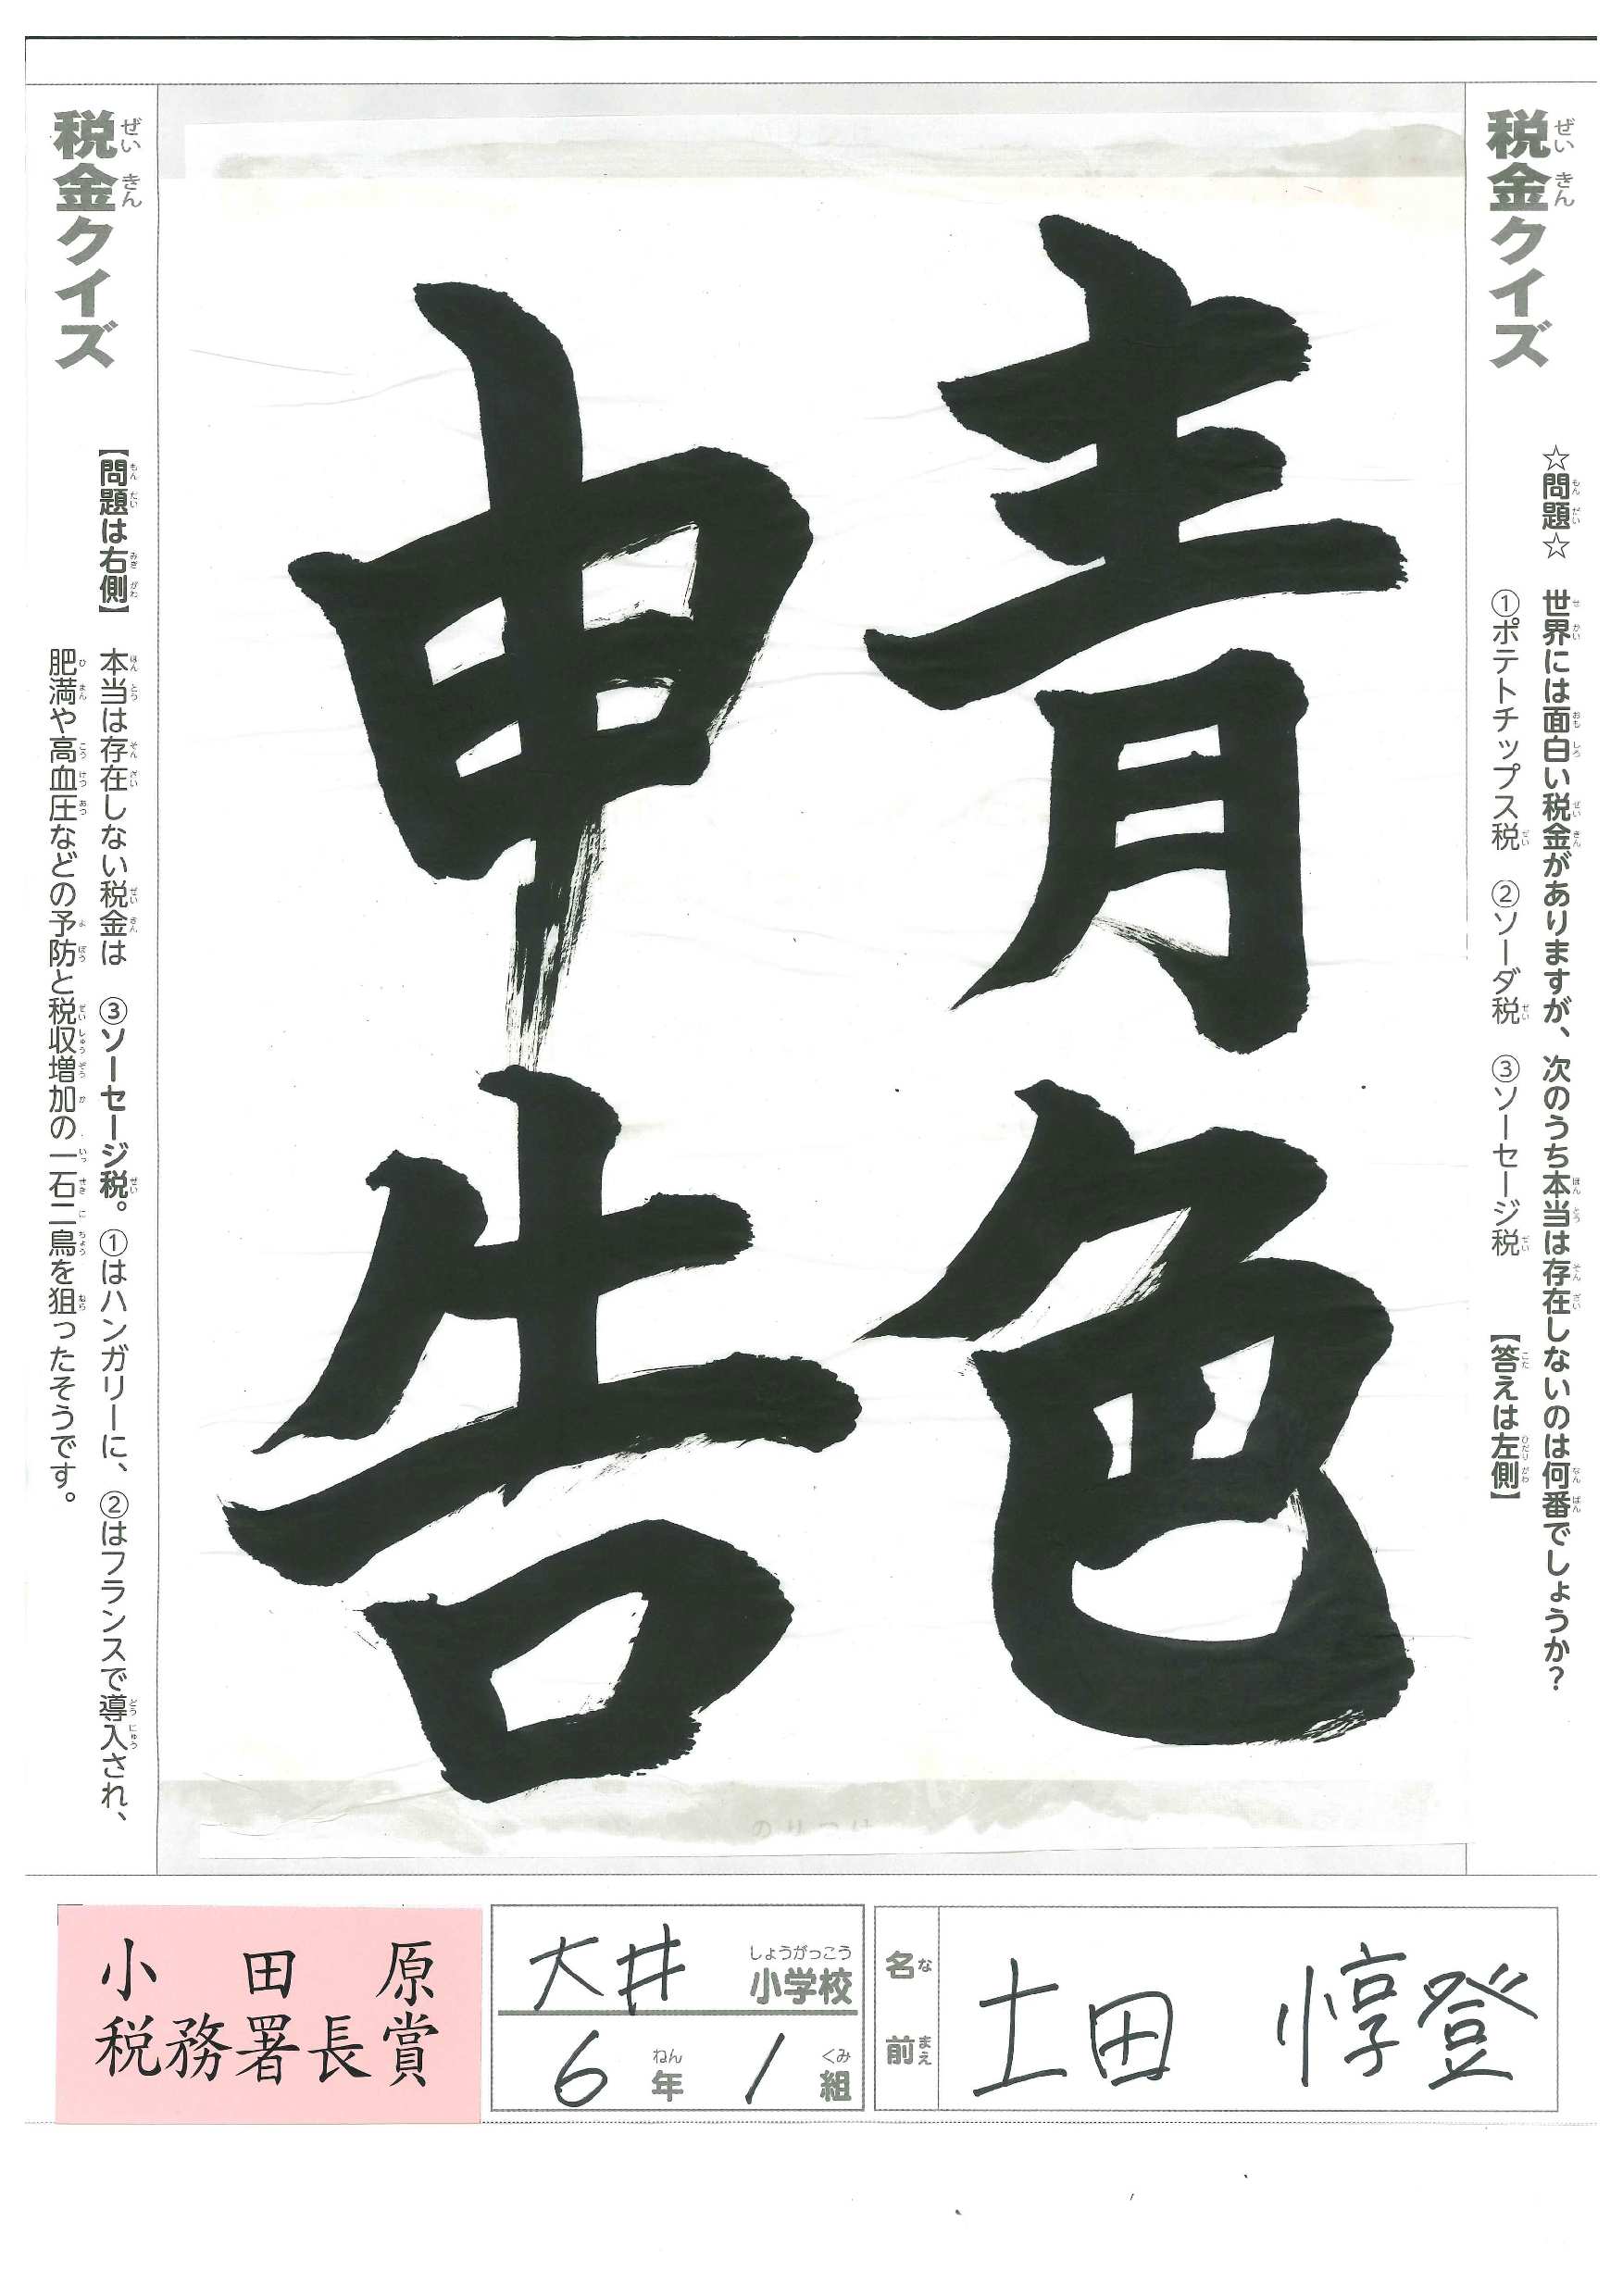 税金クイズ
☆問題☆ 世界には面白い税金がありますが、次のうち本当は存在しないのは何番でしょうか？
①ポテトチップス税 ②ソーダ税 ③ソーセージ税 【答えは左側】
青色
申告
税金クイズ
【問題は右側】 本当は存在しない税金は ③ソーセージ税。①はハンガリーに、②はフランスで導入され、
肥満や高血圧などの予防と税収増加の一石二鳥を狙ったそうです。
のりつけ
小田原
税務署長賞
大井 小学校
6年 1組
名前 土田 惇登